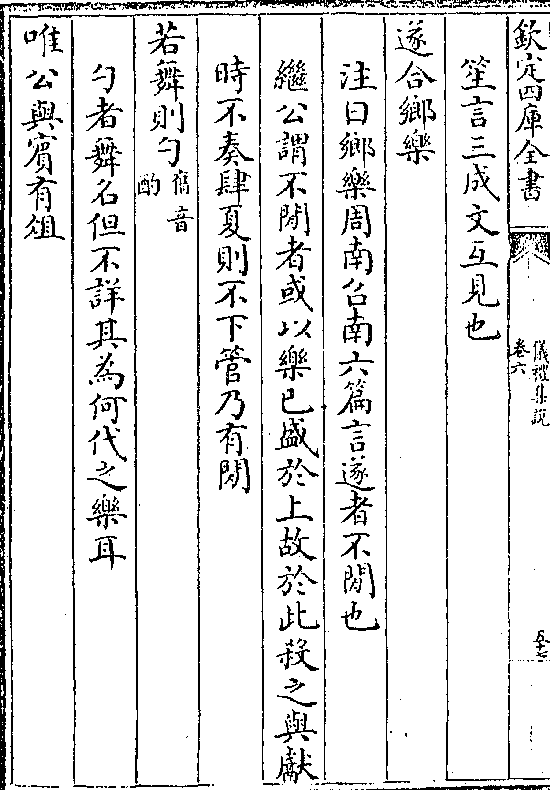 欽定四庫全書
儀禮集說
卷六
笙言三成文互見也
遂合鄉樂
注曰鄉樂周南召南六篇言遂者不閒也
繼公謂不閒者或以樂已盛於上故於此殺之與獻
時不奏肆夏則不下管乃有閒
若舞則勺舊音
酌
勺者舞名但不詳其為何代之樂耳
唯公與賓有俎